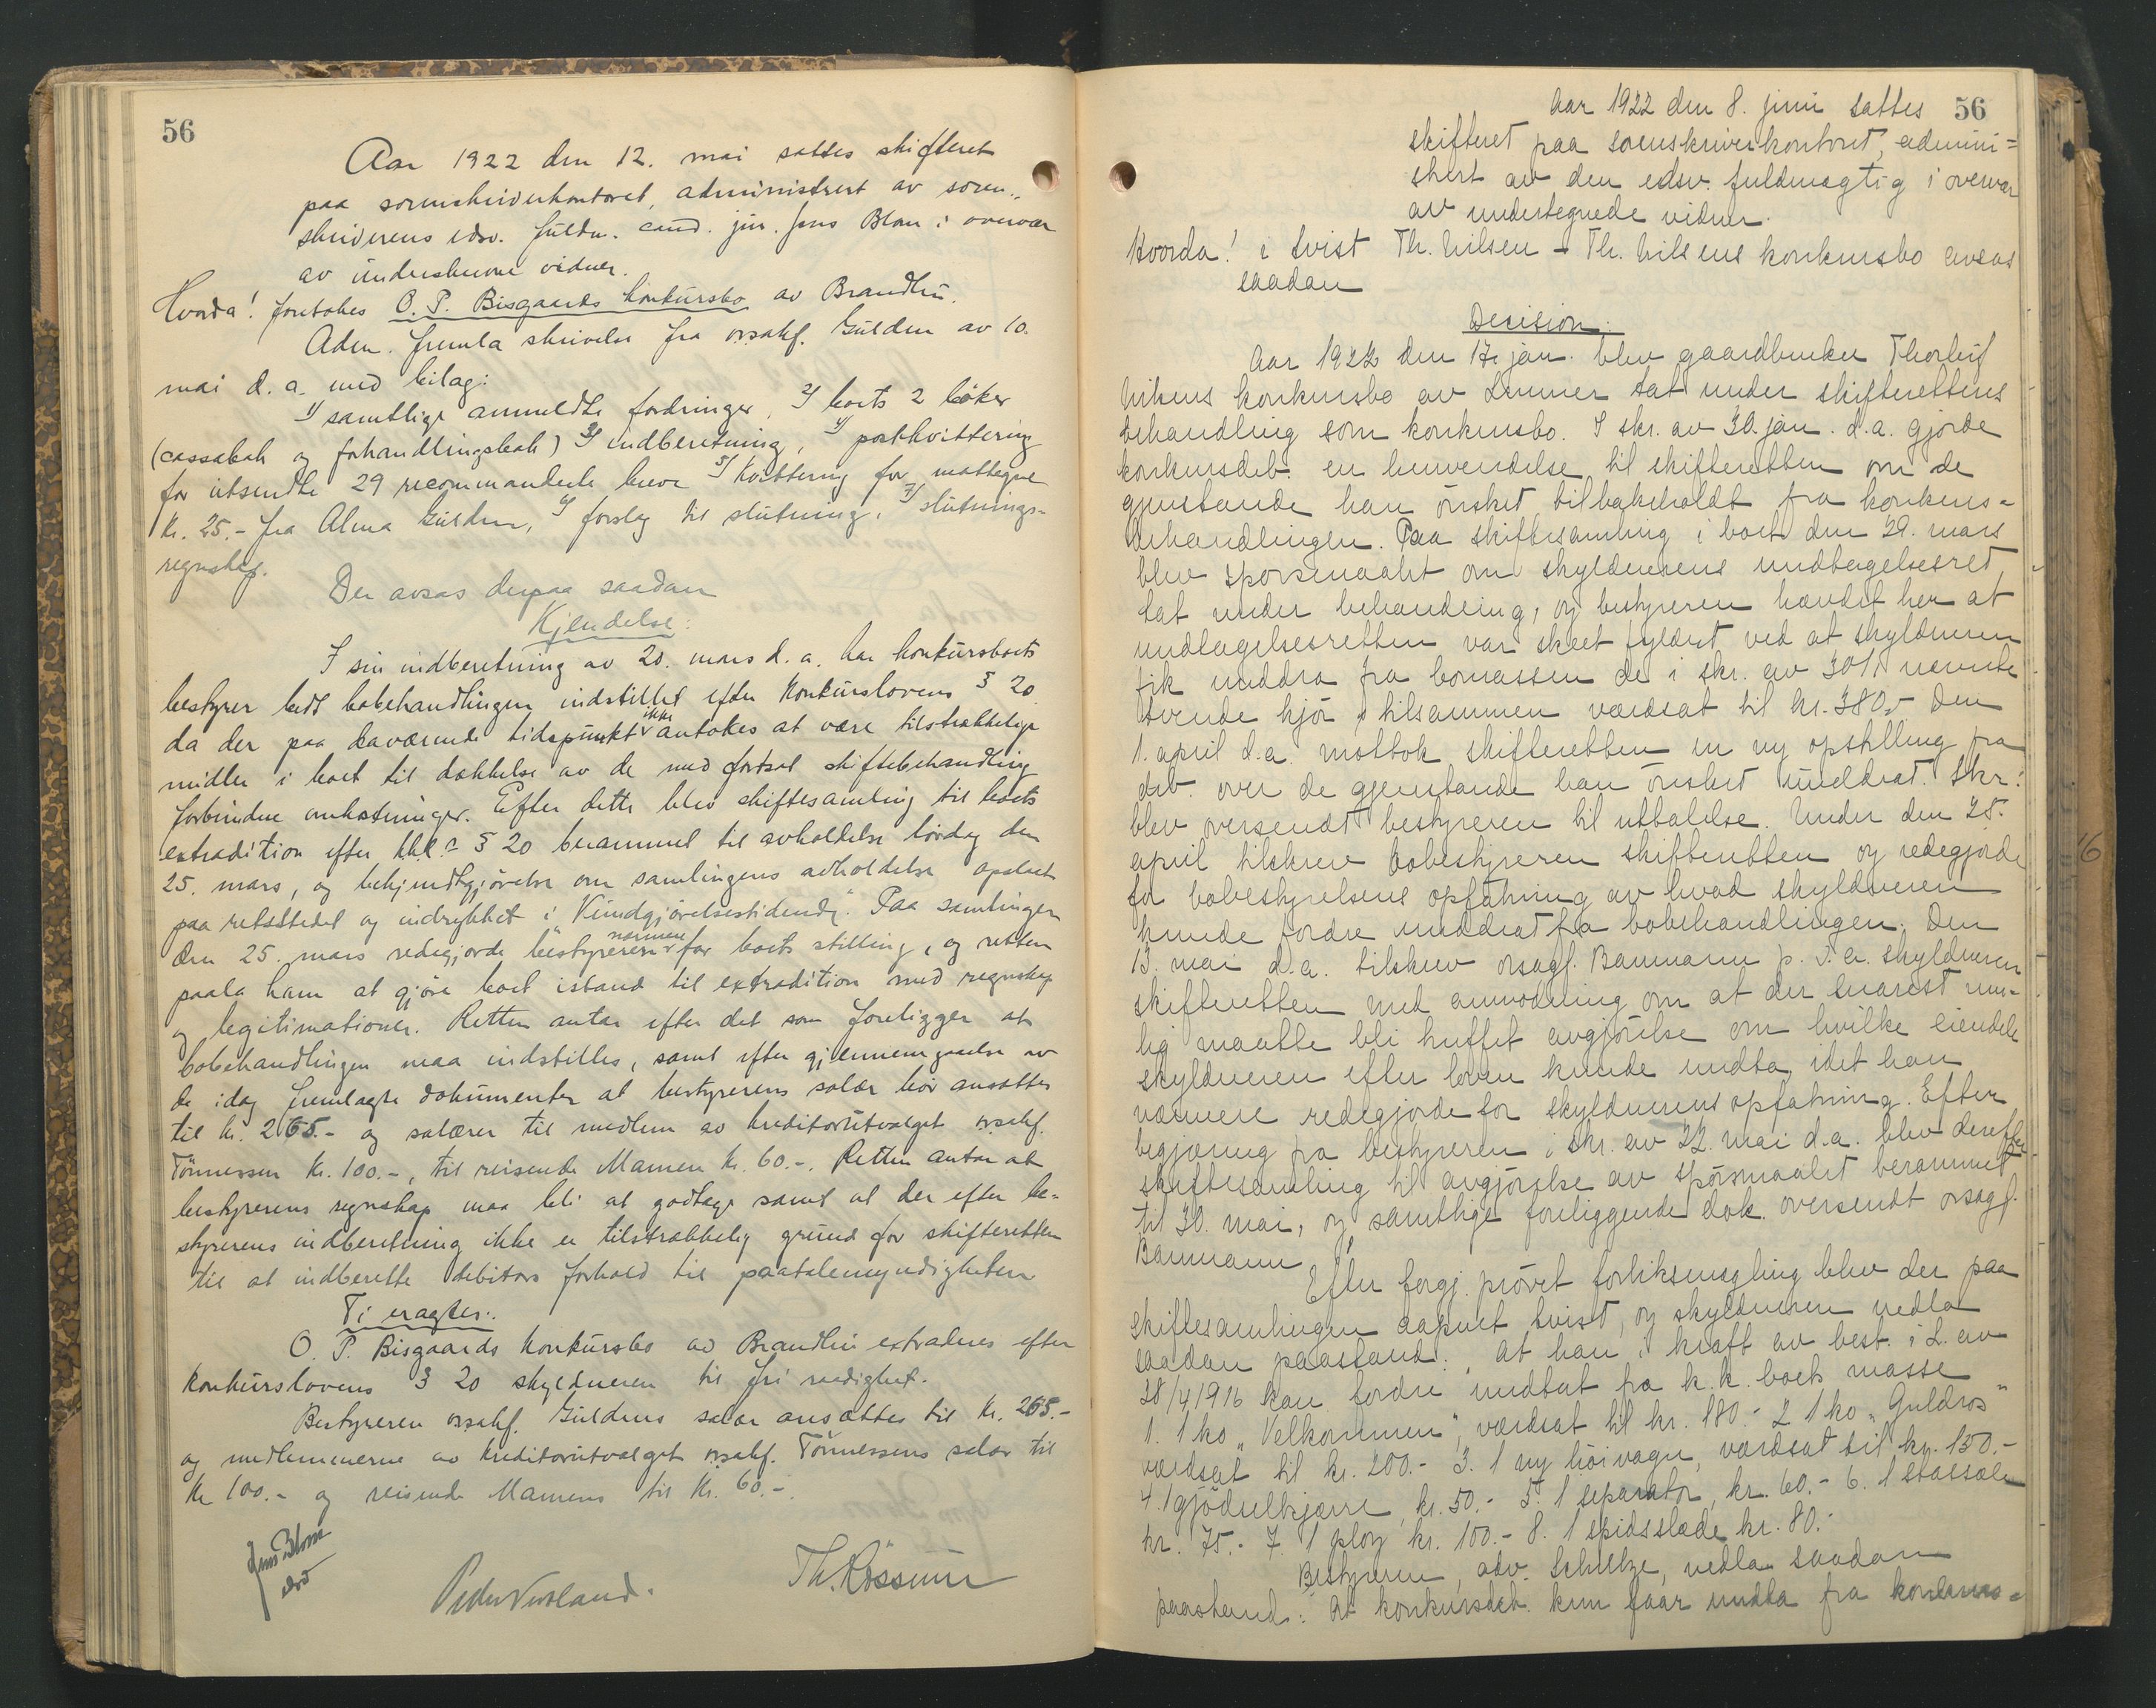 56
Aar 1922 den 12. mai sattes skifteret
paa sorenskriverkontoret, administrert av soren-
skriverens edsv. fuldm. cand. jur. Jens Blom i overvær
av underskrevne vidner.
Hvorda! foretokes O. P. Bisgaards konkursbo av Brandbu.
Adm. fremla skrivelse fra o.r.sakf. Gulden av 10.
mai d. a. med bilag:
1/ samtlige anmeldte fordringer, 2/ boets 2 bøker
(cassabok og forhandlingsbok) 3/ indberetning, 4/ postkvittering
for utsendte 29 recommanderte breve 5/ kvittering for mottagne
kr. 25.- fra Alma Gulden, 6/ forslag til slutning, 7/ slutnings-
regnskap.
Der avsas derpaa saadan
Kjendelse:
I sin indberetning av 20. mars d. a. har konkursboets
bestyrer bedt bobehandlingen indstillet efter Konkurslovens § 20
da der paa daværende tidspunkt ikke antokes at være tilstrækkelige
midler i boet til dækkelse av de med fortsat skiftebehandling
forbundne omkostninger. Efter dette blev skiftesamling til boets
extradition efter kkl. § 20 berammet til avholdelse lørdag den
25. mars, og bekjendtgjørelse om samlingens avholdelse opslaat
paa retsstedet og indrykket i "Kundgjørelsestidende". Paa samlingen
den 25. mars redegjorde bestyreren nærmere for boets stilling, og retten
paala ham at gjøre boet istand til extradition med regnskap
og legitimationer. Retten antar efter det som foreligger at
bobehandlingen maa indstilles, samt efter gjennemgaaelse av
de idag fremlagte dokumenter at bestyrerens salær bør ansættes
til kr. 265.- og salærer til medlem av kreditorutvalget o.r.sakf.
Tønnessen kr. 100.-, til reisende Mamen kr. 60.-. Retten antar at
bestyrerens regnskap maa bli at godtage samt at der efter be-
styrerens indberetning ikke er tilstrækkelig grund for skifteretten
til at indberette debitors forhold til paatalemyndigheten
Ti eragtes:
O. P. Bisgaards konkursbo av Brandbu extraderes efter
konkurslovens § 20 skyldneren til fri raadighet.
Bestyreren o.r.sakf. Guldens salær ansættes til kr. 265.-
og medlemmerne av kreditorutvalget o.r.sakf. Tønnessens salær til
kr 100.- og reisende Mamens til kr. 60.-.
Jens Blom
edsv
Th. Røssum
56
Aar 1922 den 8. juni sattes
skifteret paa sorenskriverkontoret, admini=
strert av den edsv. fuldmægtig i overvær
av undertegnede vidner.
Hvorda! i tvist Th. Nilsen - Th. Nilsens konkursbo avsas
saadan
Decision:
Aar 1922 den 17. jan. blev gaardbruker Thorleif
Nilsens konkursbo av Lunner tat under skifterettens
behandling som konkursbo. I skr. av 30. jan. d.a. gjorde
konkursdeb. en henvendelse til skifteretten om de
gjenstande han ønsket tilbakeholdt fra konkurs=
behandlingen. Paa skiftesamling i boet den 29. mars
blev spørsmaalet om skyldnerens undtagelsesret
tat under behandling, og bestyreren hævdet her at
undtagelsesretten var skeet fyldest ved at skyldneren
fik unddra fra bomassen de i skr. av 30/1 nævnte
tvende kjør, tilsammen værdsat til kr. 380,- Den
1. april d.a. mottok skifteretten en ny opstilling fra
deb. over de gjenstande han ønsket unddrat. Skr.
blev oversendt bestyreren til uttalelse. Under den 25.
april tilskrev bobestyreren skifteretten og redegjorde
for bobestyrelsens opfatning av hvad skyldneren
kunde fordre unddrat fra bobehandlingen. Den
13. mai d.a. tilskrev o.r.sagf. Baumann p.v.a. skyldneren
skifteretten med anmodning om at der snarest mu-
lig maatte bli truffet avgjørelse om hvilke eiendele
skyldneren efter loven kunde undta, idet han
nærmere redegjorde for skyldnerens opfatning. Efter
begjæring fra bestyreren i skr. av 22. mai d.a. blev derefter
skiftesamling til avgjørelse av spørsmaalet berammet
til 30. mai, og samtlige foreliggende dok. oversendt o.r.sagf.
Baumann
Efter forgj. prøvet forliksmægling blev der paa
skiftesamlingen aapnet tvist, og skyldneren nedla
saadan paastand: at han i kraft av best. i L. av
28/4 1916 kan fordre undtat fra k.k. boets masse
1. 1 ko "Velkommen", værdsat til kr. 180.- 2 1 ko "Guldros"
værdsat til kr. 200.- 3. 1 ny høivogn, værdsat til kr. 150.-
4. 1 gjødselkjærre, kr. 50.- 5. 1 separator, kr. 60.- 6. 1 stassæle
kr. 75.- 7. 1 plog kr. 100.- 8. 1 spidsslæde kr. 80.-
Bestyreren, adv. Schultze, nedla saadan
paastand: At konkursdeb. kun faar undta fra konkurs=
16